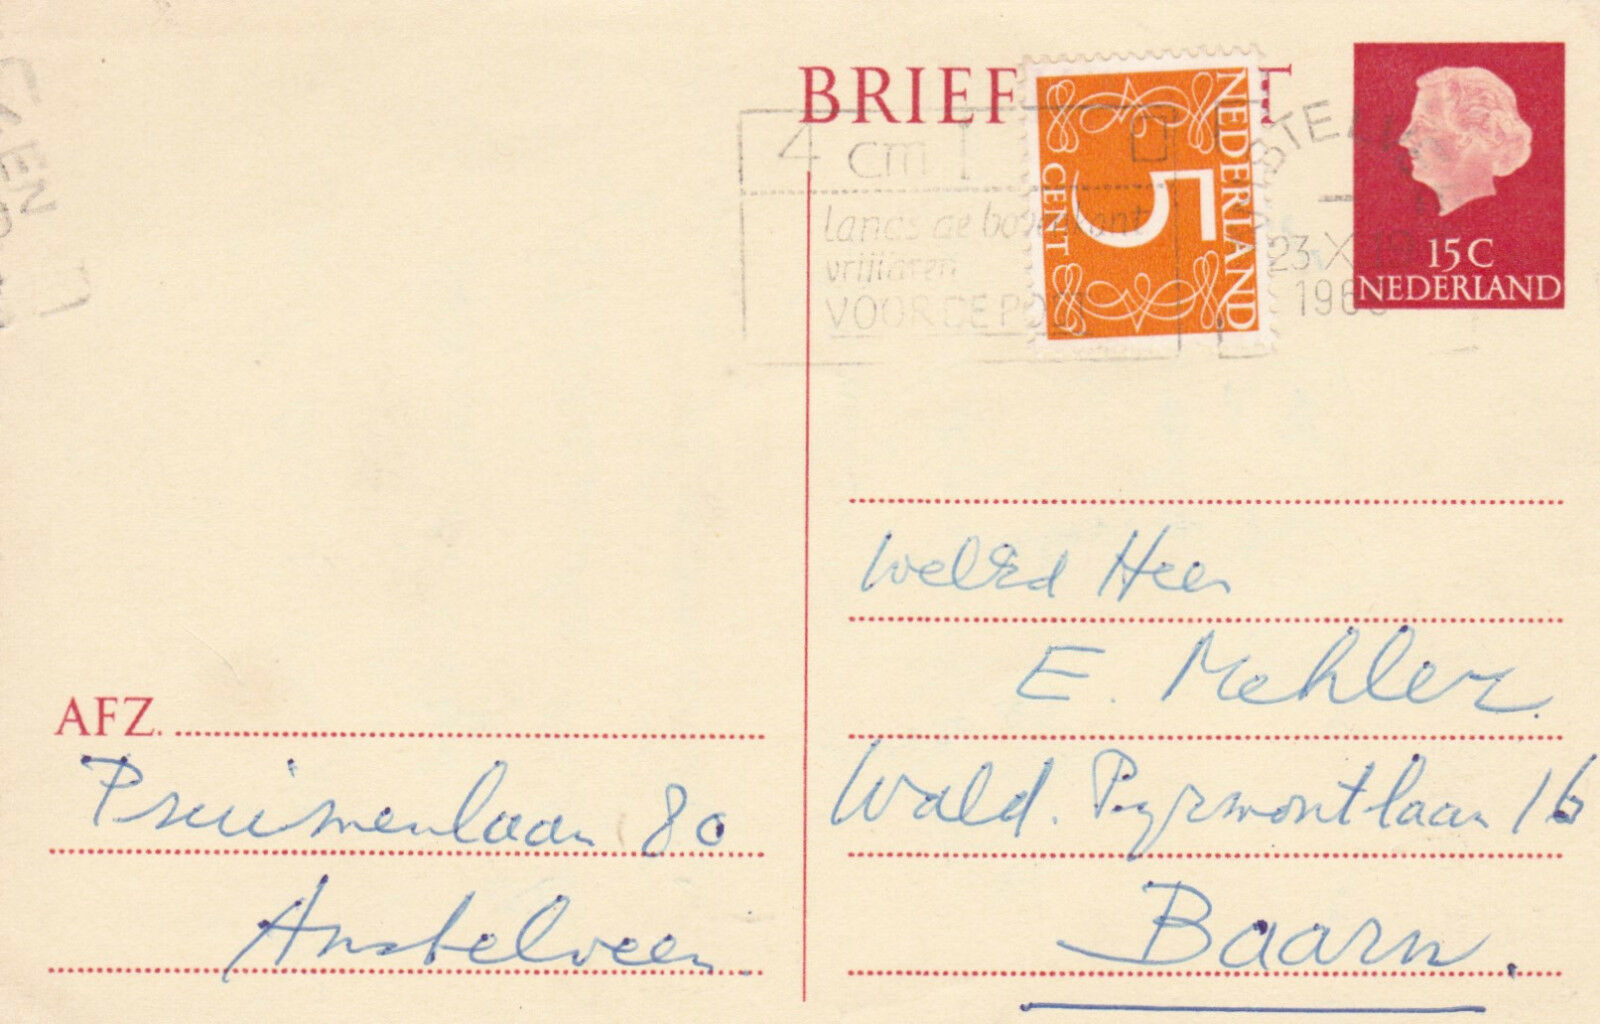 BRIEF
NEDERLAND
5
CENT
15 C
NEDERLAND
4 cm
langs de bovenkant
vrijlaten
VOOR DE POST
23.X.19
196
WelEd Heer
E. Mehler
Wald. Pyrmontlaan 16
Baarn.
AFZ.
Pruimenlaan 80
Amstelveen